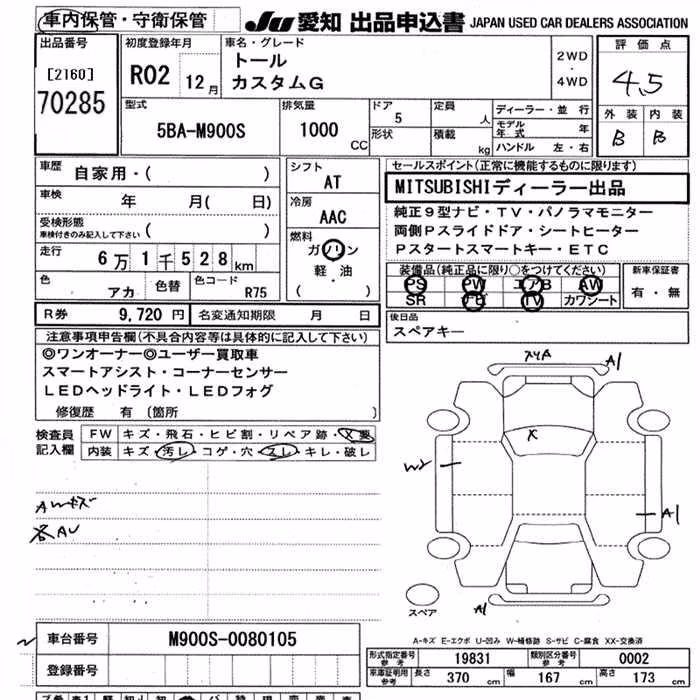 車内保管・守衛保管
JU 愛知 出品申込書 JAPAN USED CAR DEALERS ASSOCIATION
出品番号
[2160]
70285
初度登録年月
R02 12月
車名・グレード
トール
カスタムG
2WD
・
4WD
評価点
4.5
外装 内装
B B
型式
5BA-M900S
排気量
1000 CC
ドア
5
形状
定員
人
積載
kg
ディーラー・並行
モデル年式 年
ハンドル 左・右
車歴
自家用・( )
車検
年 月( 日)
受検形態
車検付きのみ記入して下さい ( )
走行
6万1千528km
色
アカ
色替
色コード
R75
シフト
AT
冷房
AAC
燃料
ガソリン
軽・油
( )
セールスポイント(正常に機能するものに限ります)
MITSUBISHIディーラー出品
純正9型ナビ・TV・パノラマモニター
両側Pスライドドア・シートヒーター
Pスタートスマートキー・ETC
装備品(純正品に限り○をつけてください)
PS PW エアB AW
SR ナビ TV カワシート
新車保証書
有・無
R券 9,720円
名変通知期限 月 日
後日品
スペアキー
注意事項申告欄(不具合内容等は具体的に記入して下さい)
◎ワンオーナー◎ユーザー買取車
スマートアシスト・コーナーセンサー
LEDヘッドライト・LEDフォグ
修復歴 有 (箇所 )
検査員
記入欄
FW キズ・飛石・ヒビ割・リペア跡・X要
内装 キズ・汚レ・コゲ・穴・スレ・キレ・破レ
AWキズ
各AU
A1
X
W2
A1
A1
スペア
A-キズ E-エクボ U-凹み W-補修跡 S-サビ C-腐食 XX-交換済
車台番号 M900S-0080105
登録番号
形式指定番号
参考
19831
類別区分番号
参考
0002
車庫証明用
参考
長さ 370 cm 幅 167 cm 高さ 173 cm